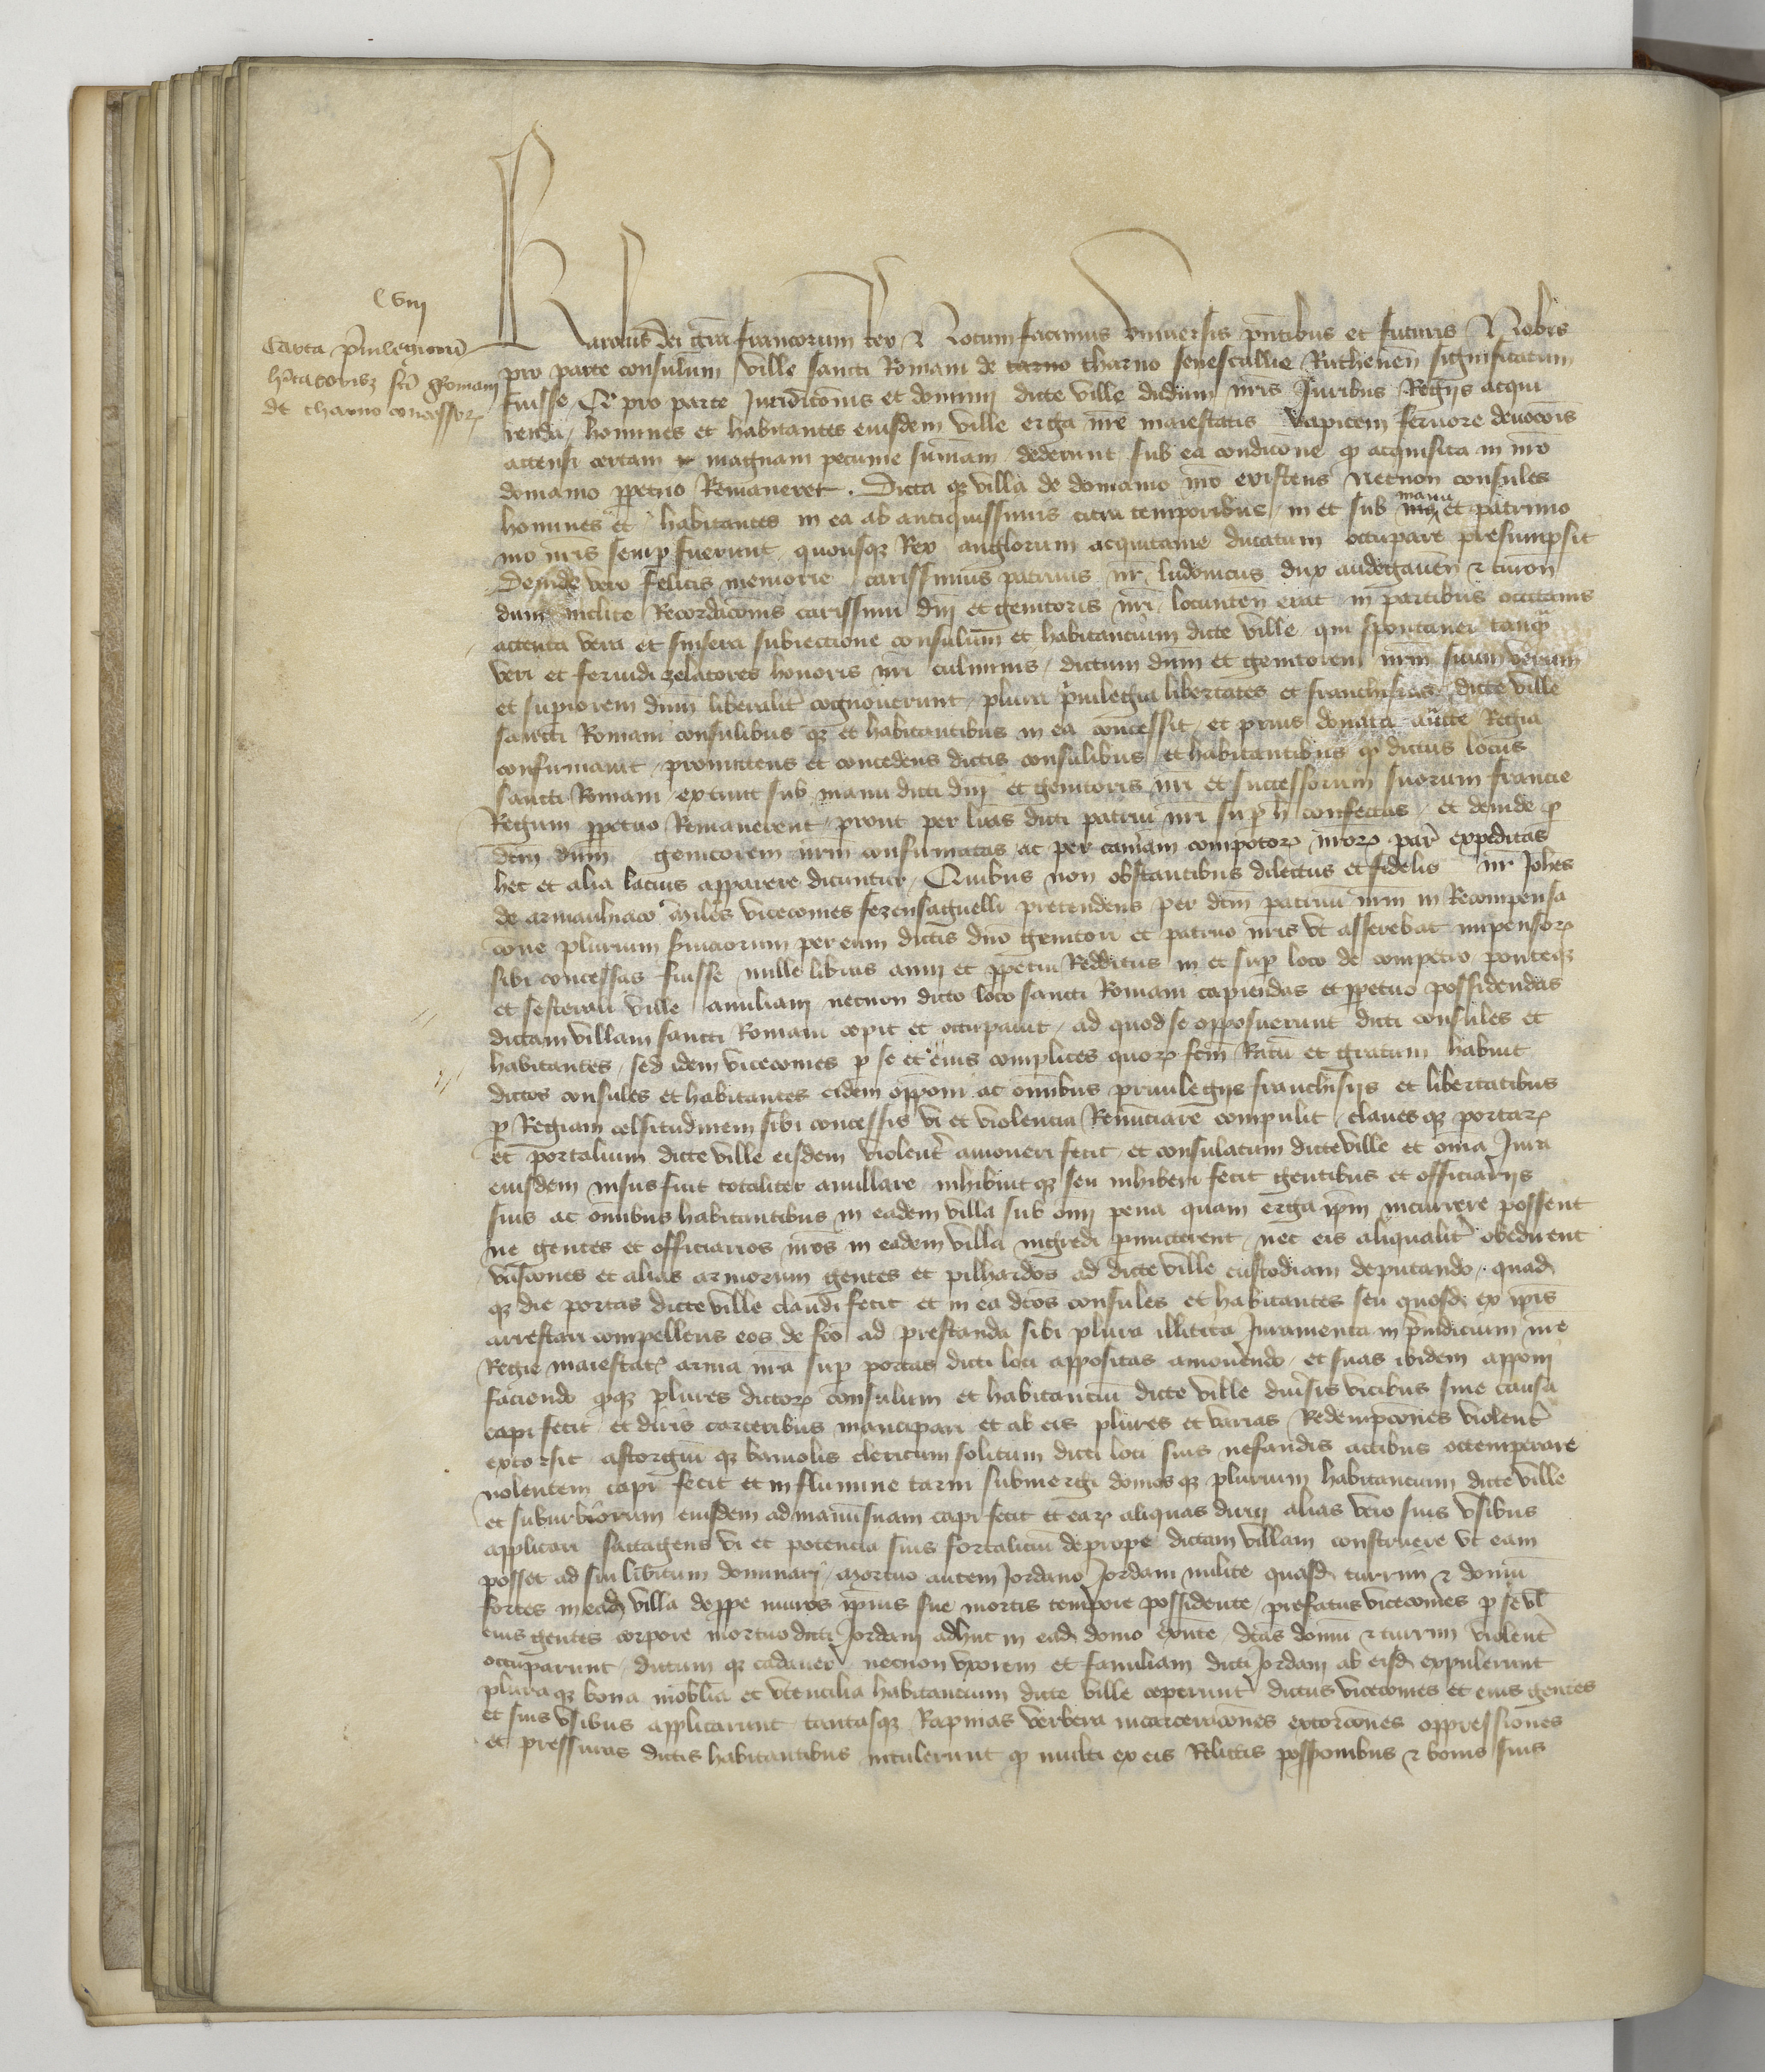 C viii
Carta privilegiorũ
hĩtatoribz sci Romani
de tharno concessoꝝ
Karolus dei gr̃a francorum rex & Notum facimus universis pñtibus et futuris Nobis
pro parte consulum ville sancti Romani de tarno tharno senescallie Ruthenen̄ significatum
fuisse Qᵈ pro parte Juridicõnis et dominij dicte ville dudum nr̃is Juribus Regijs acqui
renda / homines et habitantes eiusdem ville erga nr̃e maiestatis apicem fervore devocõis
accensi certam magnam pecunie sum̃am dederunt sub ea condicõne qᵈ acquisita in nr̃o
domanio ꝑpetuo Remaneret . Dicta qꝫ villa de domanio nr̃o existens necnon consules
homines et habitantes in ea ab antiquissimis citra temporibus in et sub manu et patrimo
nio nr̃is semꝑ fuerunt quousqꝫ Rex anglorum acquitanie ducatum occupare presumpsit
Deinde vero felicis memorie carissimus patruus nr̃ ludovicus dux andegaven̄ & turon̄
dum inclite Recordacõnis carissimi dñi et genitoris nr̃i locumten̄ erat in partibus occitanis
attenta vera et sinsera subiectione consulum et habitantium dicte ville qui spontanei tanqᵃ
veri et fervidi zelatores honoris nr̃i culminis / dictum dñm et genitorem nr̃m suum verum
et suꝑiorem dñm liberalit̃ cognoverunt / plura p̃vilegia libertates et franchisias dicte ville
sancti Romani consulibus qꝫ et habitantibus in ea concessit / et prius donata auc̃te Regia
confirmavit / promittens et concedens dictis consulibus et habitantibus qᵈ dictus locus
sancti Romani extunc sub manu dicti dñi et genitoris nr̃i et successorum suorum francie
Regum ꝑpetuo Remanerent / prout per lr̃as dicti patrui nr̃i suꝑ h̃ confectas / et deinde ꝑ
dc̃m dñm genitorem nr̃m confirmatas ac per cam̃am compotoꝝ nr̃oꝝ par̃ expeditas
hec et alia lacius apparere dicuntur / Quibus non obstantibus dilectus et fidelis nr̃ Joh̃es
de armaniaco miles vicecomes fezensaguelli pretendens per dc̃m patruũ nr̃m in Recompensa
cõne plurium s̃viciorum per eum dictis dño genitori et patruo nr̃is ut asserebat impensoꝝ
sibi concessas fuisse mille libras annui et ꝑpetui Redditus in et suꝑ loco de competro ponteqꝫ
et sesterau ville amiliani necnon dicto loco sancti Romani capiendas et ꝑpetuo possidendas
dictam villam sancti Romani cepit et occupavit / ad quod se opposuerunt dicti consules et
habitantes / sed idem vicecomes ꝑ se et eius complices quoꝝ fc̃m Ratũ et gratum habuit
dictos consules et habitantes eidem opponi ac om̃ibus privilegijs franchisijs et libertatibus
ꝑ Regiam celsitudinem sibi concessis vi et violencia Renunciare compulit / claves qꝫ portaꝝ
et portalium dicte ville eisdem violent̃ amoveri fecit / et consulatum dicte ville et om̃ia Jura
eiusdem nisus fuit totaliter anullare / inhibuit qꝫ seu inhiberi fecit gentibus et officiarijs
suis ac om̃ibus habitantibus in eadem villa sub om̃i pena quam erga ip̃m incurrere possent
ne gentes et officiarios nr̃os in eadem villa ingredi ꝑmitterent / nec eis aliqualit̃ obedirent
vascones et alias armorum gentes et pilhardos ad dicte ville custodiam deputando / quad̃
qꝫ die portas dicte ville claudi fecit et in ea dc̃os consules et habitantes seu quosd̃ ex ip̃is
arrestari compellens eos de fc̃o ad prestanda sibi plura illicita Juramenta in p̃iudicium nr̃e
Regie maiestatꝭ arma nr̃a suꝑ portas dicti loci appositas amovendo / et suas ibidem apponi
faciendo qᵈqꝫ plures dictoꝝ consulum et habitanciũ dicte ville div̾sis vicibus sine causa
capi fecit / et diris carceribus mancipari et ab eis plures et varias Redempcõnes violent̃
extorsit / astorgiũ qꝫ bamolis clericum solitum dicti loci suis nefandis actibus obtemperare
nolentem capi fecit et in flumine tarni submergi domosqꝫ plurium habitancium dicte ville
et suburbiorum eiusdem ad manũ suam capi fecit et eaꝝ aliquas dirui alias vero suis usibus
applicari / sattagens vi et potencia suis fortalicium deprope dictam villam construere ut eam
posset ad sui libitum dominari / Mortuo autem Jordano Jordani milite quasd̃ turrim & domũ
fortes in ead̃ villa deꝓpe muros ip̃ius sue mortis tempore possidente / prefatus vicecomes ꝑ se vl̃
eius gentes corpore mortuo dicti Jordani adhuc in ead̃ domo exñte / dc̃as domũ & turrim violent̃
occuparunt / dictum qꝫ cadaver necnon uxorem et familiam dicti Jordani ab eisd̃ expulerunt
pluraqꝫ bona mobilia et utencilia habitancium dicte ville ceperunt dictus vicecomes et eius gentes
et suis usibus applicarunt / tantasqꝫ Rapinas verbera incarceracõnes extorcõnes oppressiones
et pressuras dictis habitantibus intulerunt qᵈ multi ex eis Relictis possionibus & bonis suis